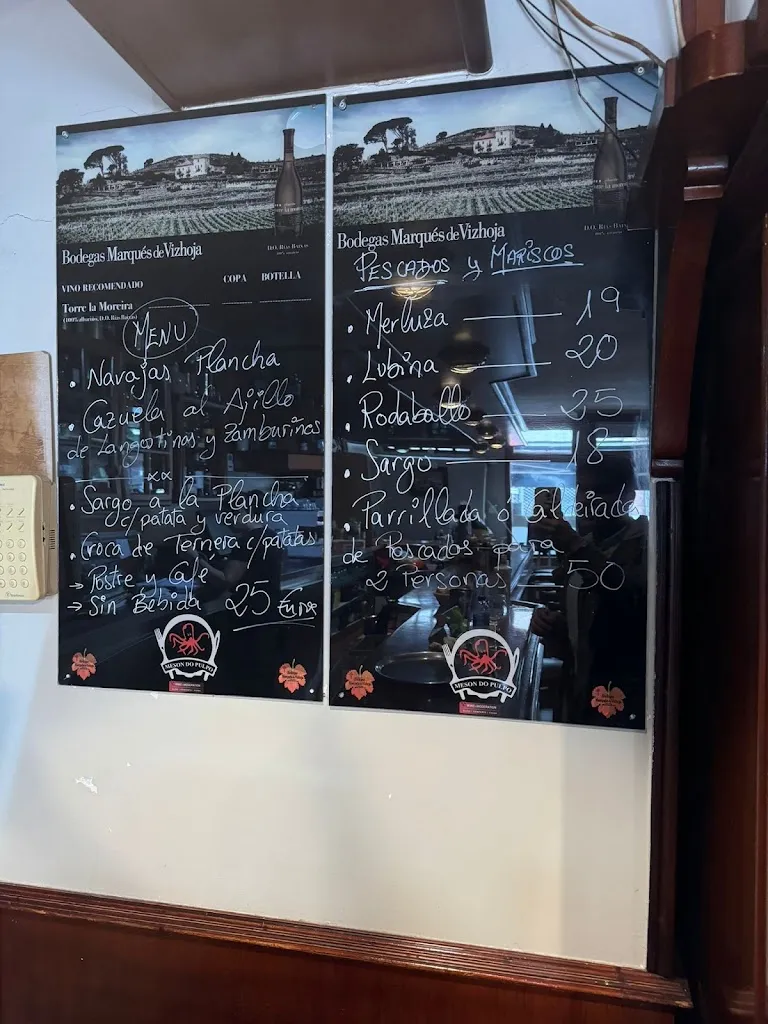 Bodegas Marqués de Vizhoja
D.O. RÍAS BAIXAS
VINO RECOMENDADO
COPA BOTELLA
Torre la Moreira
(100% albariño, D.O. Rías Baixas)
MENU
• Navajas Plancha
• Cazuela al Ajillo
de Langostinos y Zamburiñas
xx
• Sargo a la Plancha
c/patata y verdura
• Croca de Ternera c/patatas
→ Postre y Café
→ Sin Bebida 25 Euros
MESON DO PULPO
Bodegas Marqués de Vizhoja
D.O. RÍAS BAIXAS
PESCADOS y MARISCOS
• Merluza — 19
• Lubina — 20
• Rodaballo — 25
• Sargo — 18
• Parrillada o Caldeirada
de Pescados para
2 Personas 50
MESON DO PULPO